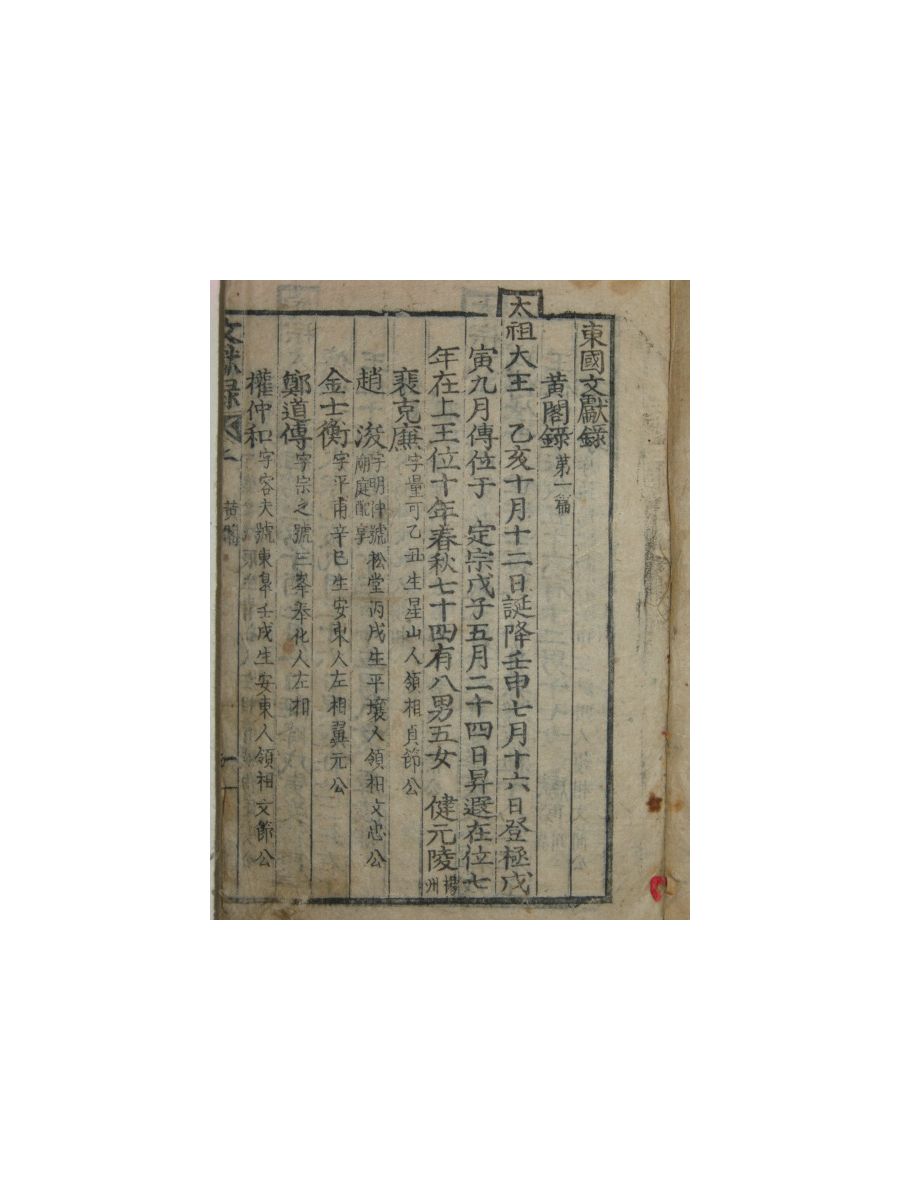 東國文獻錄
黃閣錄 第一篇
太祖大王 乙亥十月十二日誕降壬申七月十六日登極戊
寅九月傳位于 定宗戊子五月二十四日昇遐在位七
年在上王位十年春秋七十四有八男五女 健元陵 楊州
裵克廉 字量可乙丑生星山人領相貞節公
趙浚 字明仲號松堂丙戌生平壤人領相文忠公
廟庭配享
金士衡 字平甫辛巳生安東人左相翼元公
鄭道傳 字宗之號三峯奉化人左相
權仲和 字容夫號東皐壬戌生安東人領相文節公
文獻錄 黃閣 一